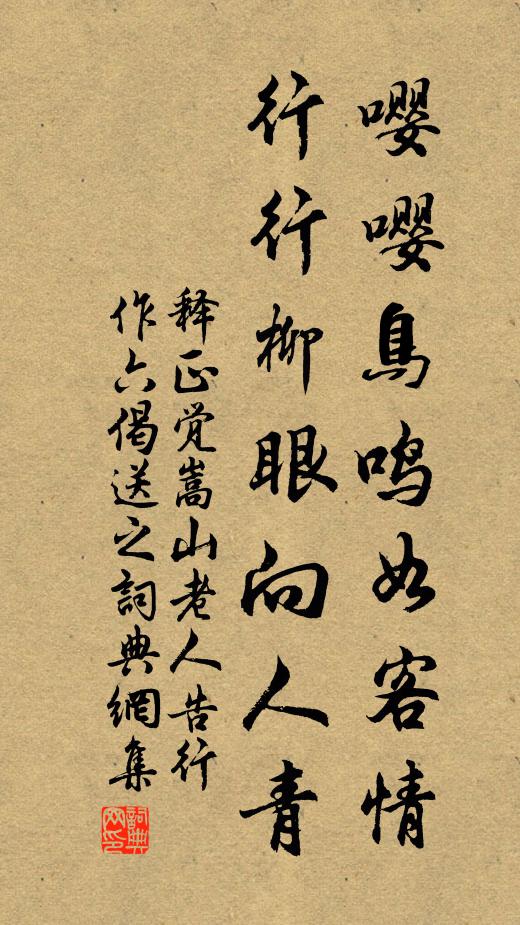 嘤嘤鳥鸣如客情
行行柳眼向人青
释正觉嵩山老人告行
作六偈送之詞典網集
詞典网印